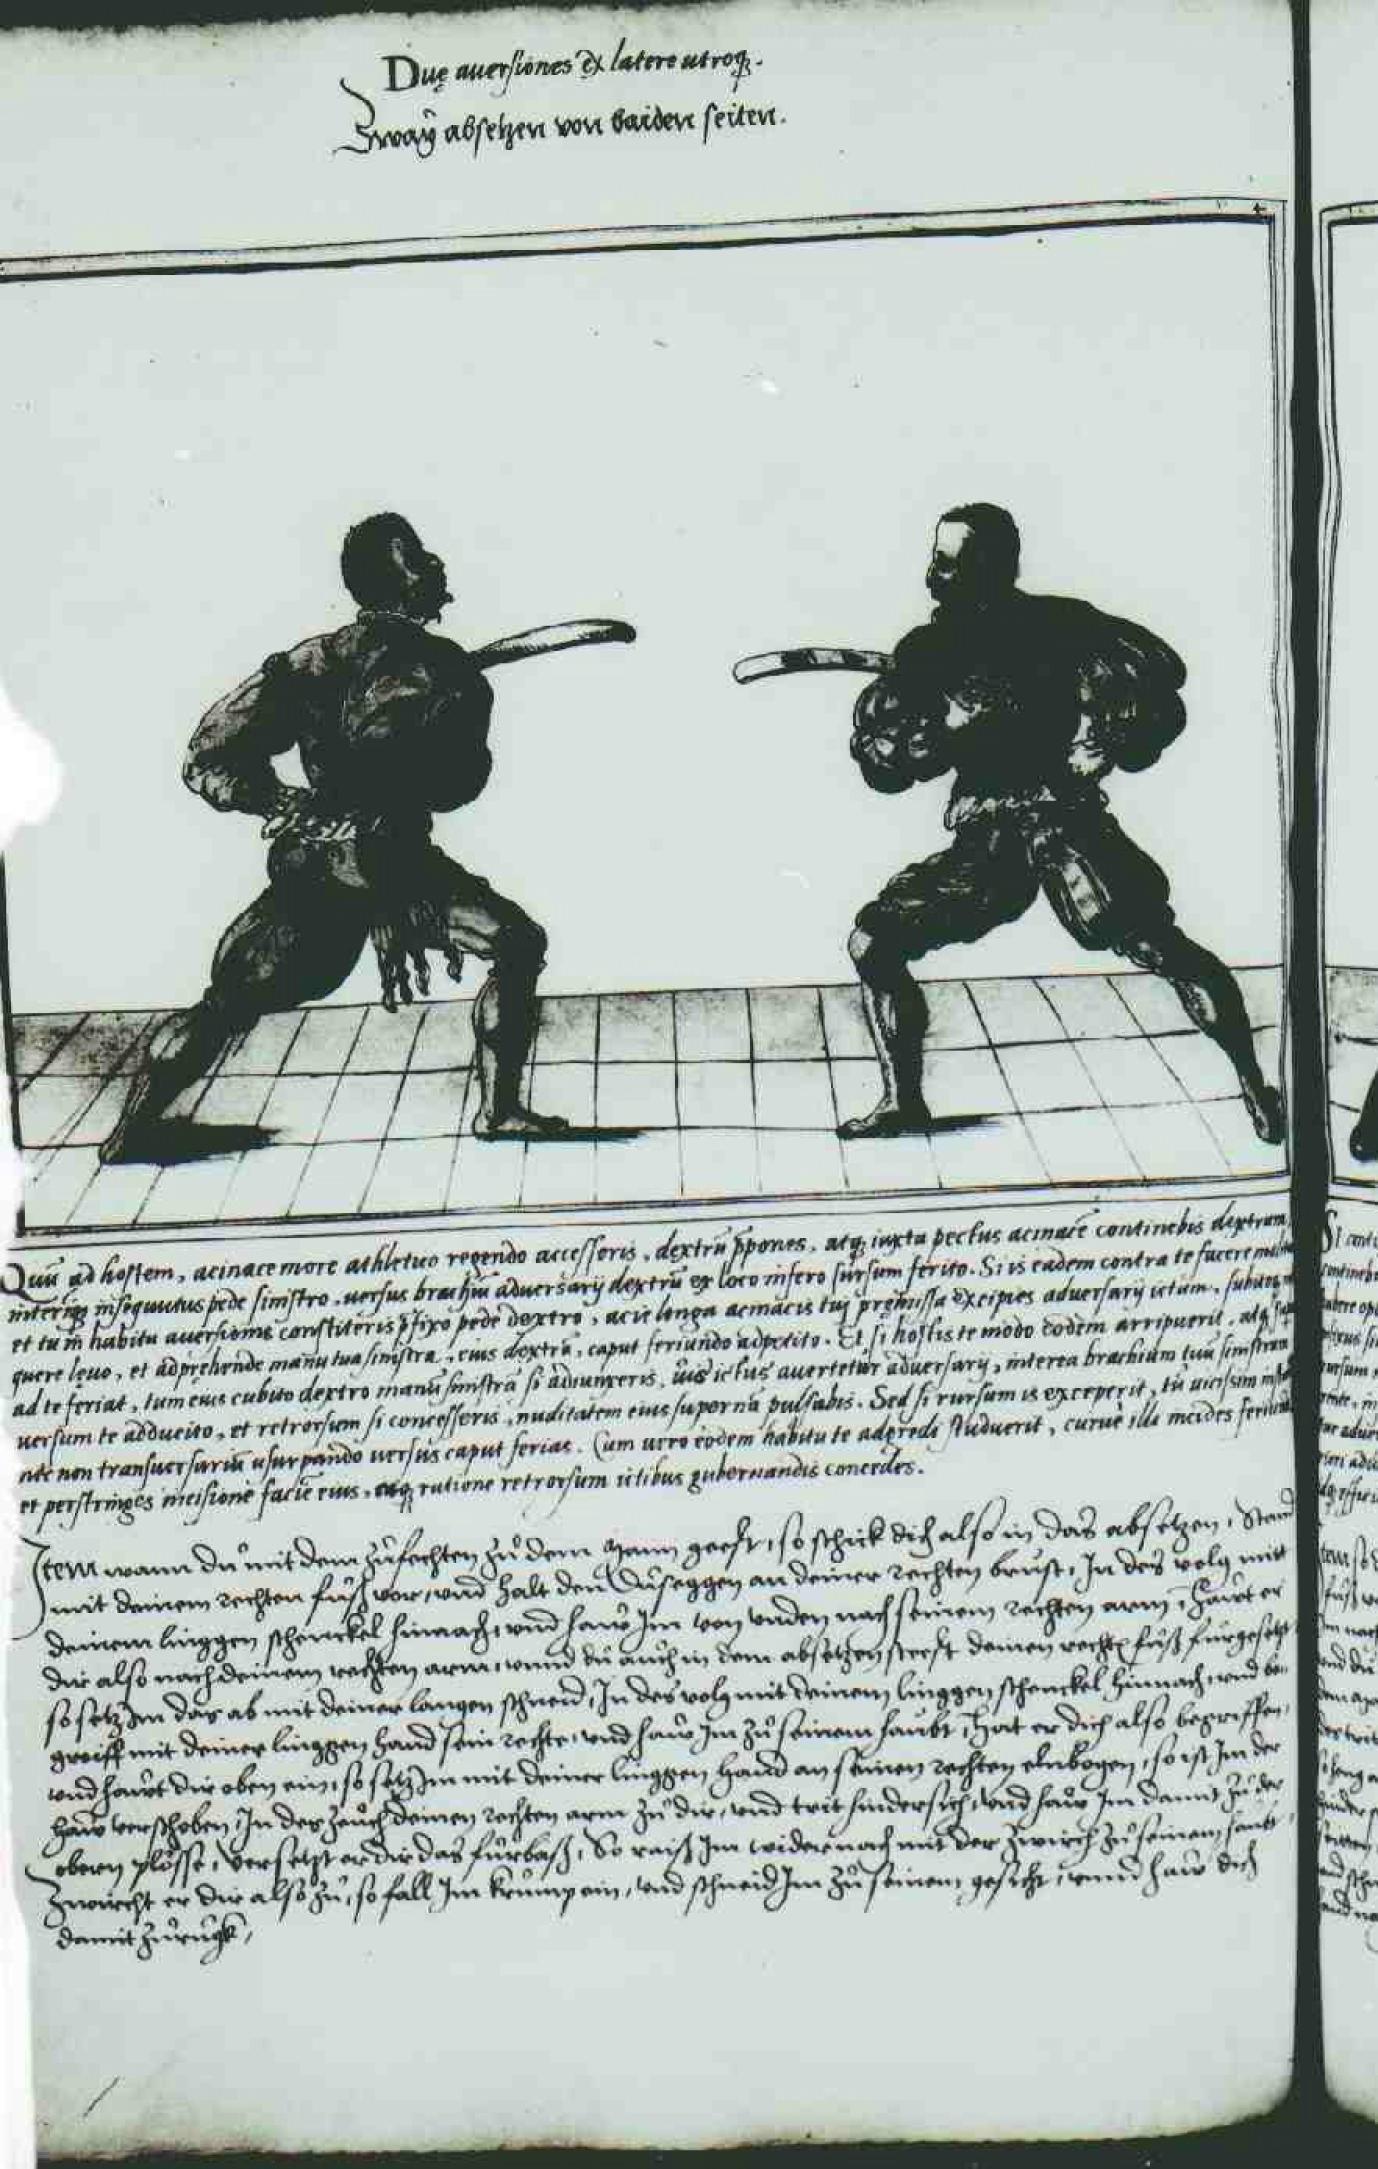 Duę auersiones ex latere utroq.
Zway absetzen von baiden seiten.
Quū ad hostem, acinace more athletico regendo accesseris, dextrū ppones, atq iuxta pectus acinacē continebis dextrum,
interimq insequutus pede sinistro, uersus brachiū aduersarij dextrū ex loco infero sursum ferito. Si is eadem contra te facere
et tu in habitu auersionis constiteris pfixo pede dextro, acie longa acinacis tui pręmissa excipies aduersarij ictum, subito
quere leuo, et adprehende manu tua sinistra, eius dextrā, caput feriundo adpetito. Et si hostis te modo eodem arripuerit, atq
ad te feriat, tum eius cubito dextro manū sinistrā si adiunxeris, uis ictus auertetur aduersarij, interea brachium tuū
uersum te adducito, et retrorsum si concesseris, nuditatem eius supernā pulsabis. Sed si rursum is exceperit, tū uicissim
non transuersariū usurpando uersus caput ferias. Cum uero eodem habitu te adgredi studuerit, curuè illi incides
et perstringes incisione faciē eius, eaq ratione retrorsum ictibus gubernandis concedes.
Item wann du mit dem zufechten zu dem Mann geest, so schick dich also in das absetzen, Stand
mit deinem rechten fuß vor, und halt den Dusęggen an deiner rechten brust, In des volg mit
deinem linggen schenckel hinnach, und haw Im von unden nach seinem rechten arm, hawt er
dir also nach deinem rechten arm, unnd du auch in dem absetzen steest deinen rechtē fuß furgesetzt
so setz Im das ab mit deiner langen schneid, In des volg mit deinem linggen schenckel hinnach, und
greiff mit deiner linggen hand sein rechte, und haw Im zu seinem haubt, hat er dich also begriffen,
und hawt dir oben ein, so setz Im mit deiner linggen hand an seinen rechten elnbogen, so ist Im der
haw verschoben, In des zeuch deinen rechten arm zu dir, und trit hindersich, und haw Im damit zu der
obern plösse, versetzt er dir das furbaß, So raiß Im wider nach mit der zwirch zu seinem haubt,
Zwircht er dir also zu, so fall Im krump ein, und schneid Im zu seinem gesicht, unnd haw dich
damit zurugk,